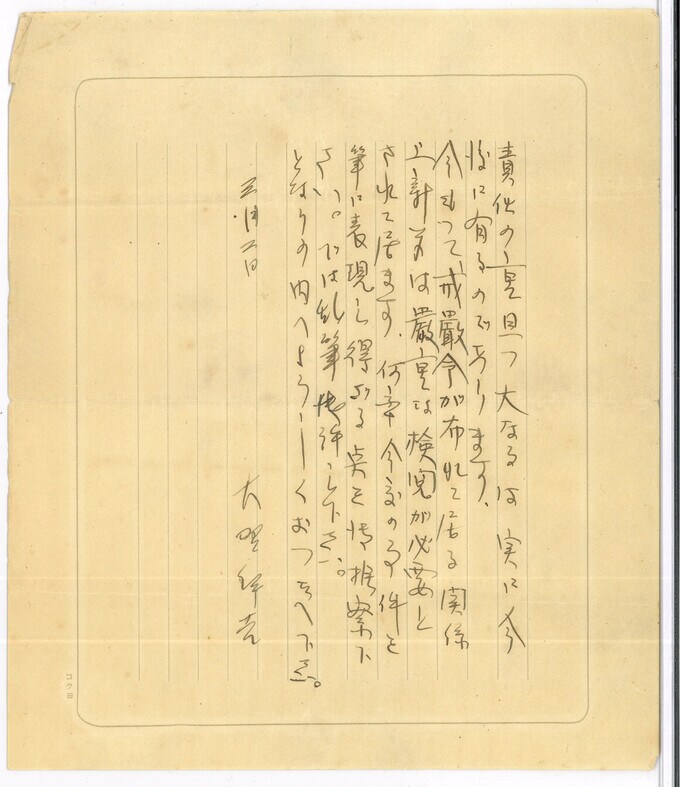 責任の重且つ大なるは実に今
後に有るのであります、
今もつて、戒嚴令が布かれて居る関係
上新聞は嚴重な検閲が必要と
されて居ます、何卒今度の事件を
筆に表現し得ざる点を御推察下
さい。では乱筆御許し下さい。
となりの内へよろしくおつたへ下さい。
三月
大野
コクヨ